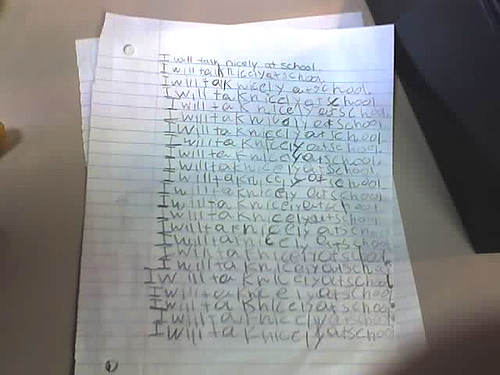 I will talk nicely at school.
I will talk nicely at school.
I will talk nicely at school.
I will talk nicely at school.
I will talk nicely at school.
I will talk nicely at school.
I will talk nicely at school.
I will talk nicely at school.
I will talk nicely at school.
I will talk nicely at school.
I will talk nicely at school.
I will talk nicely at school.
I will talk nicely at school.
I will talk nicely at school.
I will talk nicely at school.
I will talk nicely at school.
I will talk nicely at school.
I will talk nicely at school.
I will talk nicely at school.
I will talk nicely at school.
I will talk nicely at school.
I will talk nicely at school.
I will talk nicely at school.